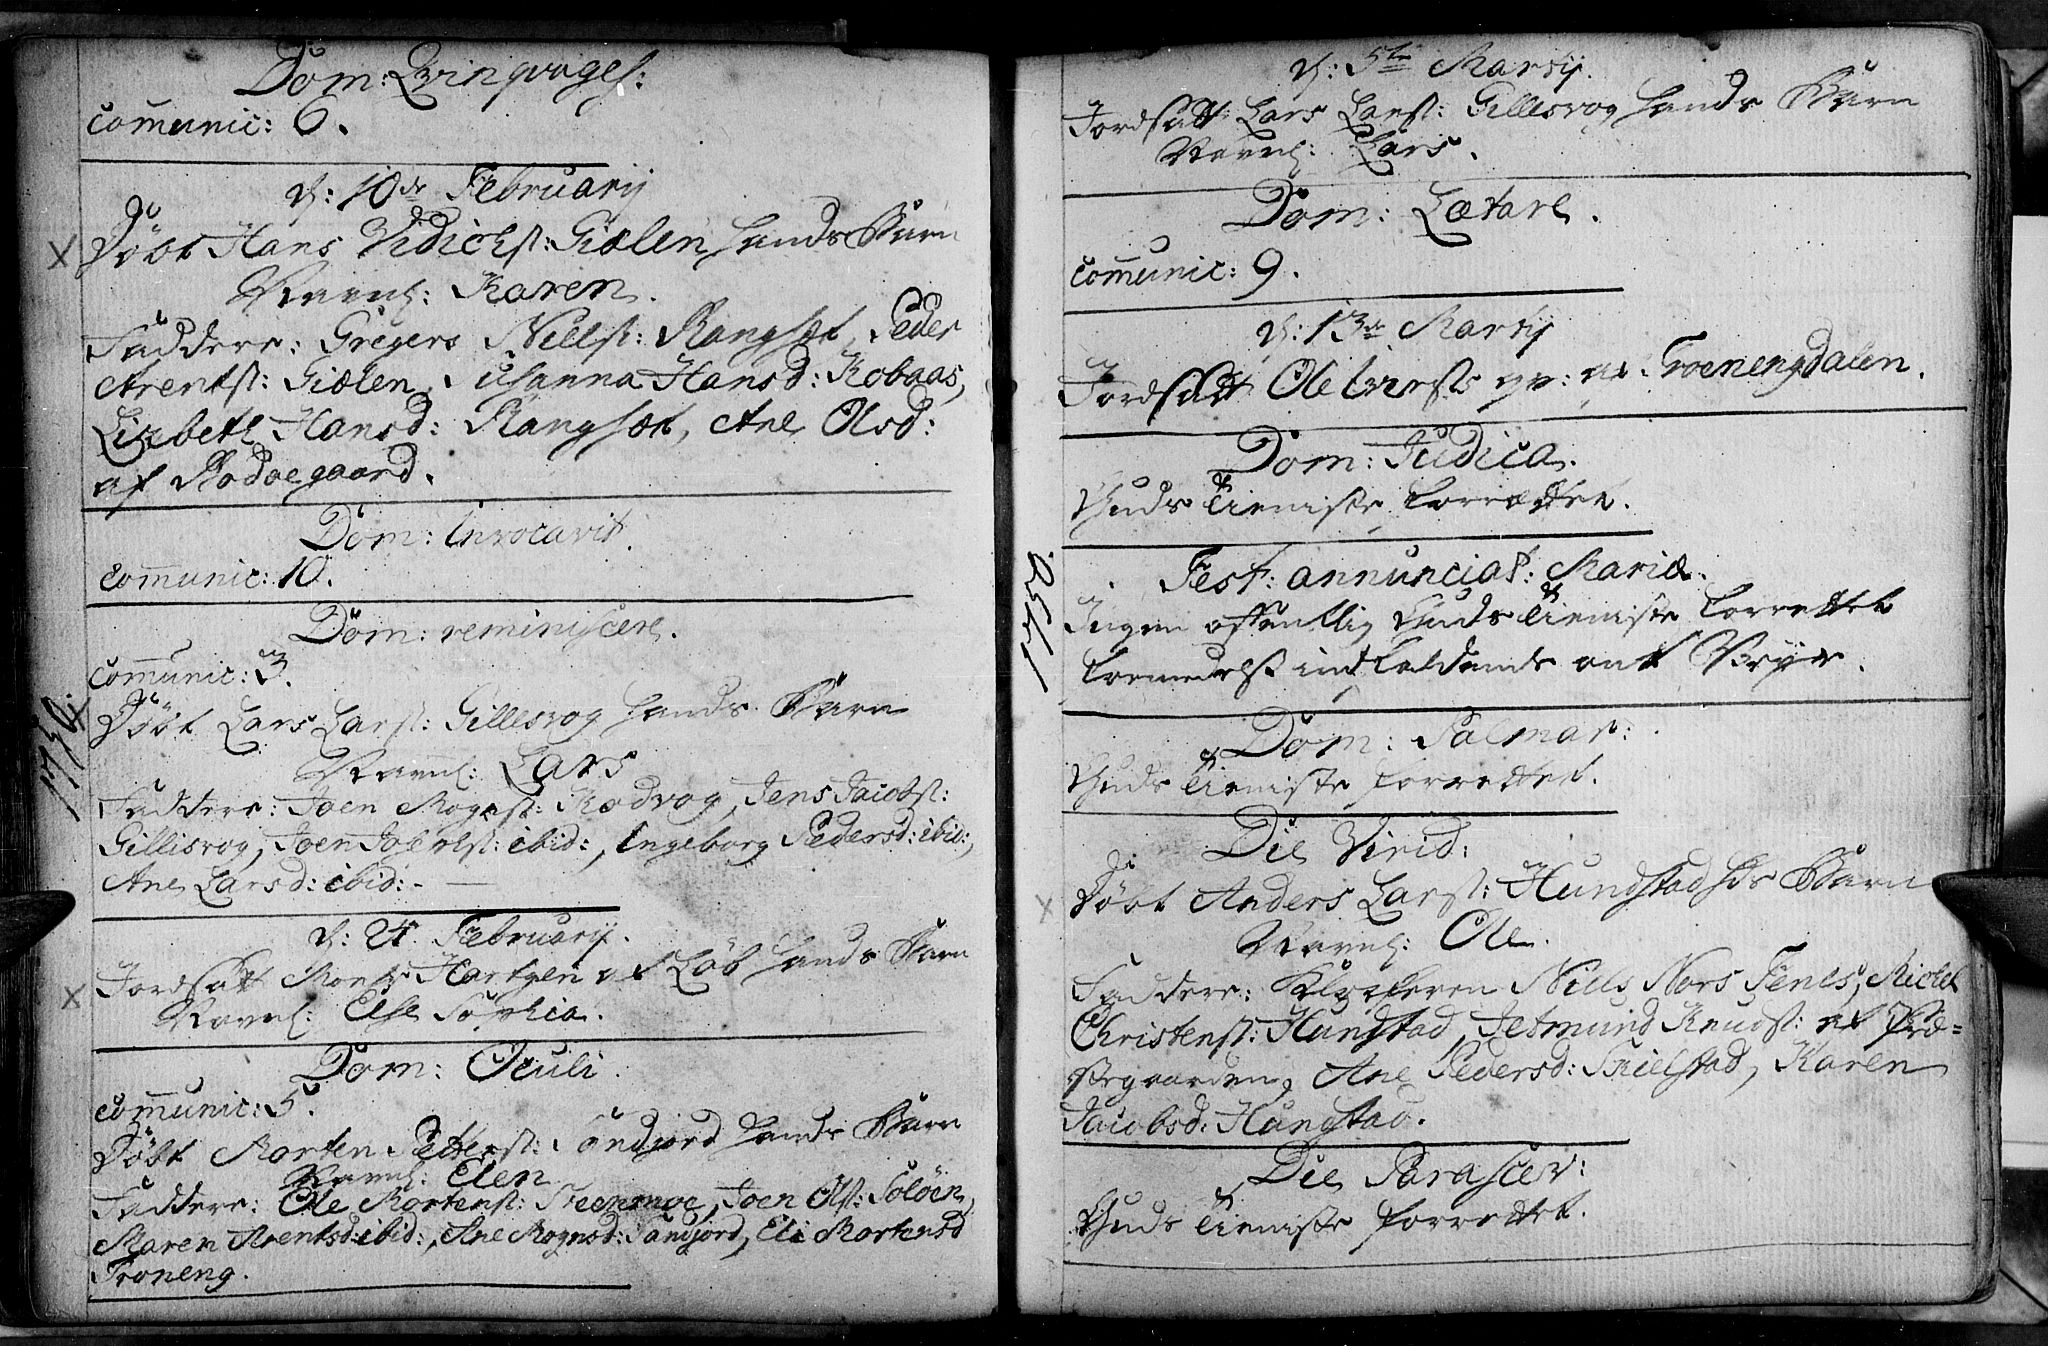 Dom: Qvinqvages:
communic: 6.
d: 10de Februarij
Døbt Hans Didichst: Giælen hands Barn
Navnl: Karen.
Faddere: Gregers Nillst: Rangsæt, Peder
Arentst: Giælen, Susanna Hansd: Kobaas,
Lizbeth Hansd: Rangsæt, Ane Olsd:
af Rødøegaard.
Dom: Invocavit.
communic: 10.
Dom: reminiscere.
communic: 3.
Døbt Lars Larst: Gillesvog hands Barn
Navnl: Lars
Faddere: Joen Mognst: Rødvog, Jens Jacobst:
Gillisvog, Joen ibid:, Ingeborg Pedersd: ibid:,
Ane Larsd: ibid:
1750.
d: 24 Februarij.
Jordsatt Mons: Hartgen af Løb hands Barn
Navnl: Else Sophia.
Dom: Oculi
communic: 5.
Døbt Morten Petterst: Sandjord hands Barn
Navnl: Elen
Faddere: Ole Mortenst: Steenmoe, Joen Olst: Soløen,
Maren Arentsd: ibid:, Ane Mognsd: Sandjord, Eli Mortensd
Troneng.
d: 5te Martij.
Jordsatt Lars Larst: Gillesvog hands Barn
Navnl: Lars.
Dom: Lætare.
communic: 9.
d: 13de Martij
Jordsatt Ole af Troenengdalen.
Dom: Judica.
Guds tieniste forrættet.
Fest: annunciat: Mariæ.
Ingen offentlig Guds tieniste forrettet
formedelst indfaldende ont Veyr.
1750.
Dom: Palmar:
Guds tieniste forrettet.
Die Virid:
Døbt Anders Larst: Hundstad hds Barn
Navnl: Ole.
Faddere: Klokkeren Nills Nors Fenes, Michel
Christenst: Hundstad, Jetmund Knudst: af Præ-
stegaarden, Ane Pedersd: Skielstad, Karen
Jacobsd: Hundstad.
Die Parascev:
Guds tieniste forrettet.